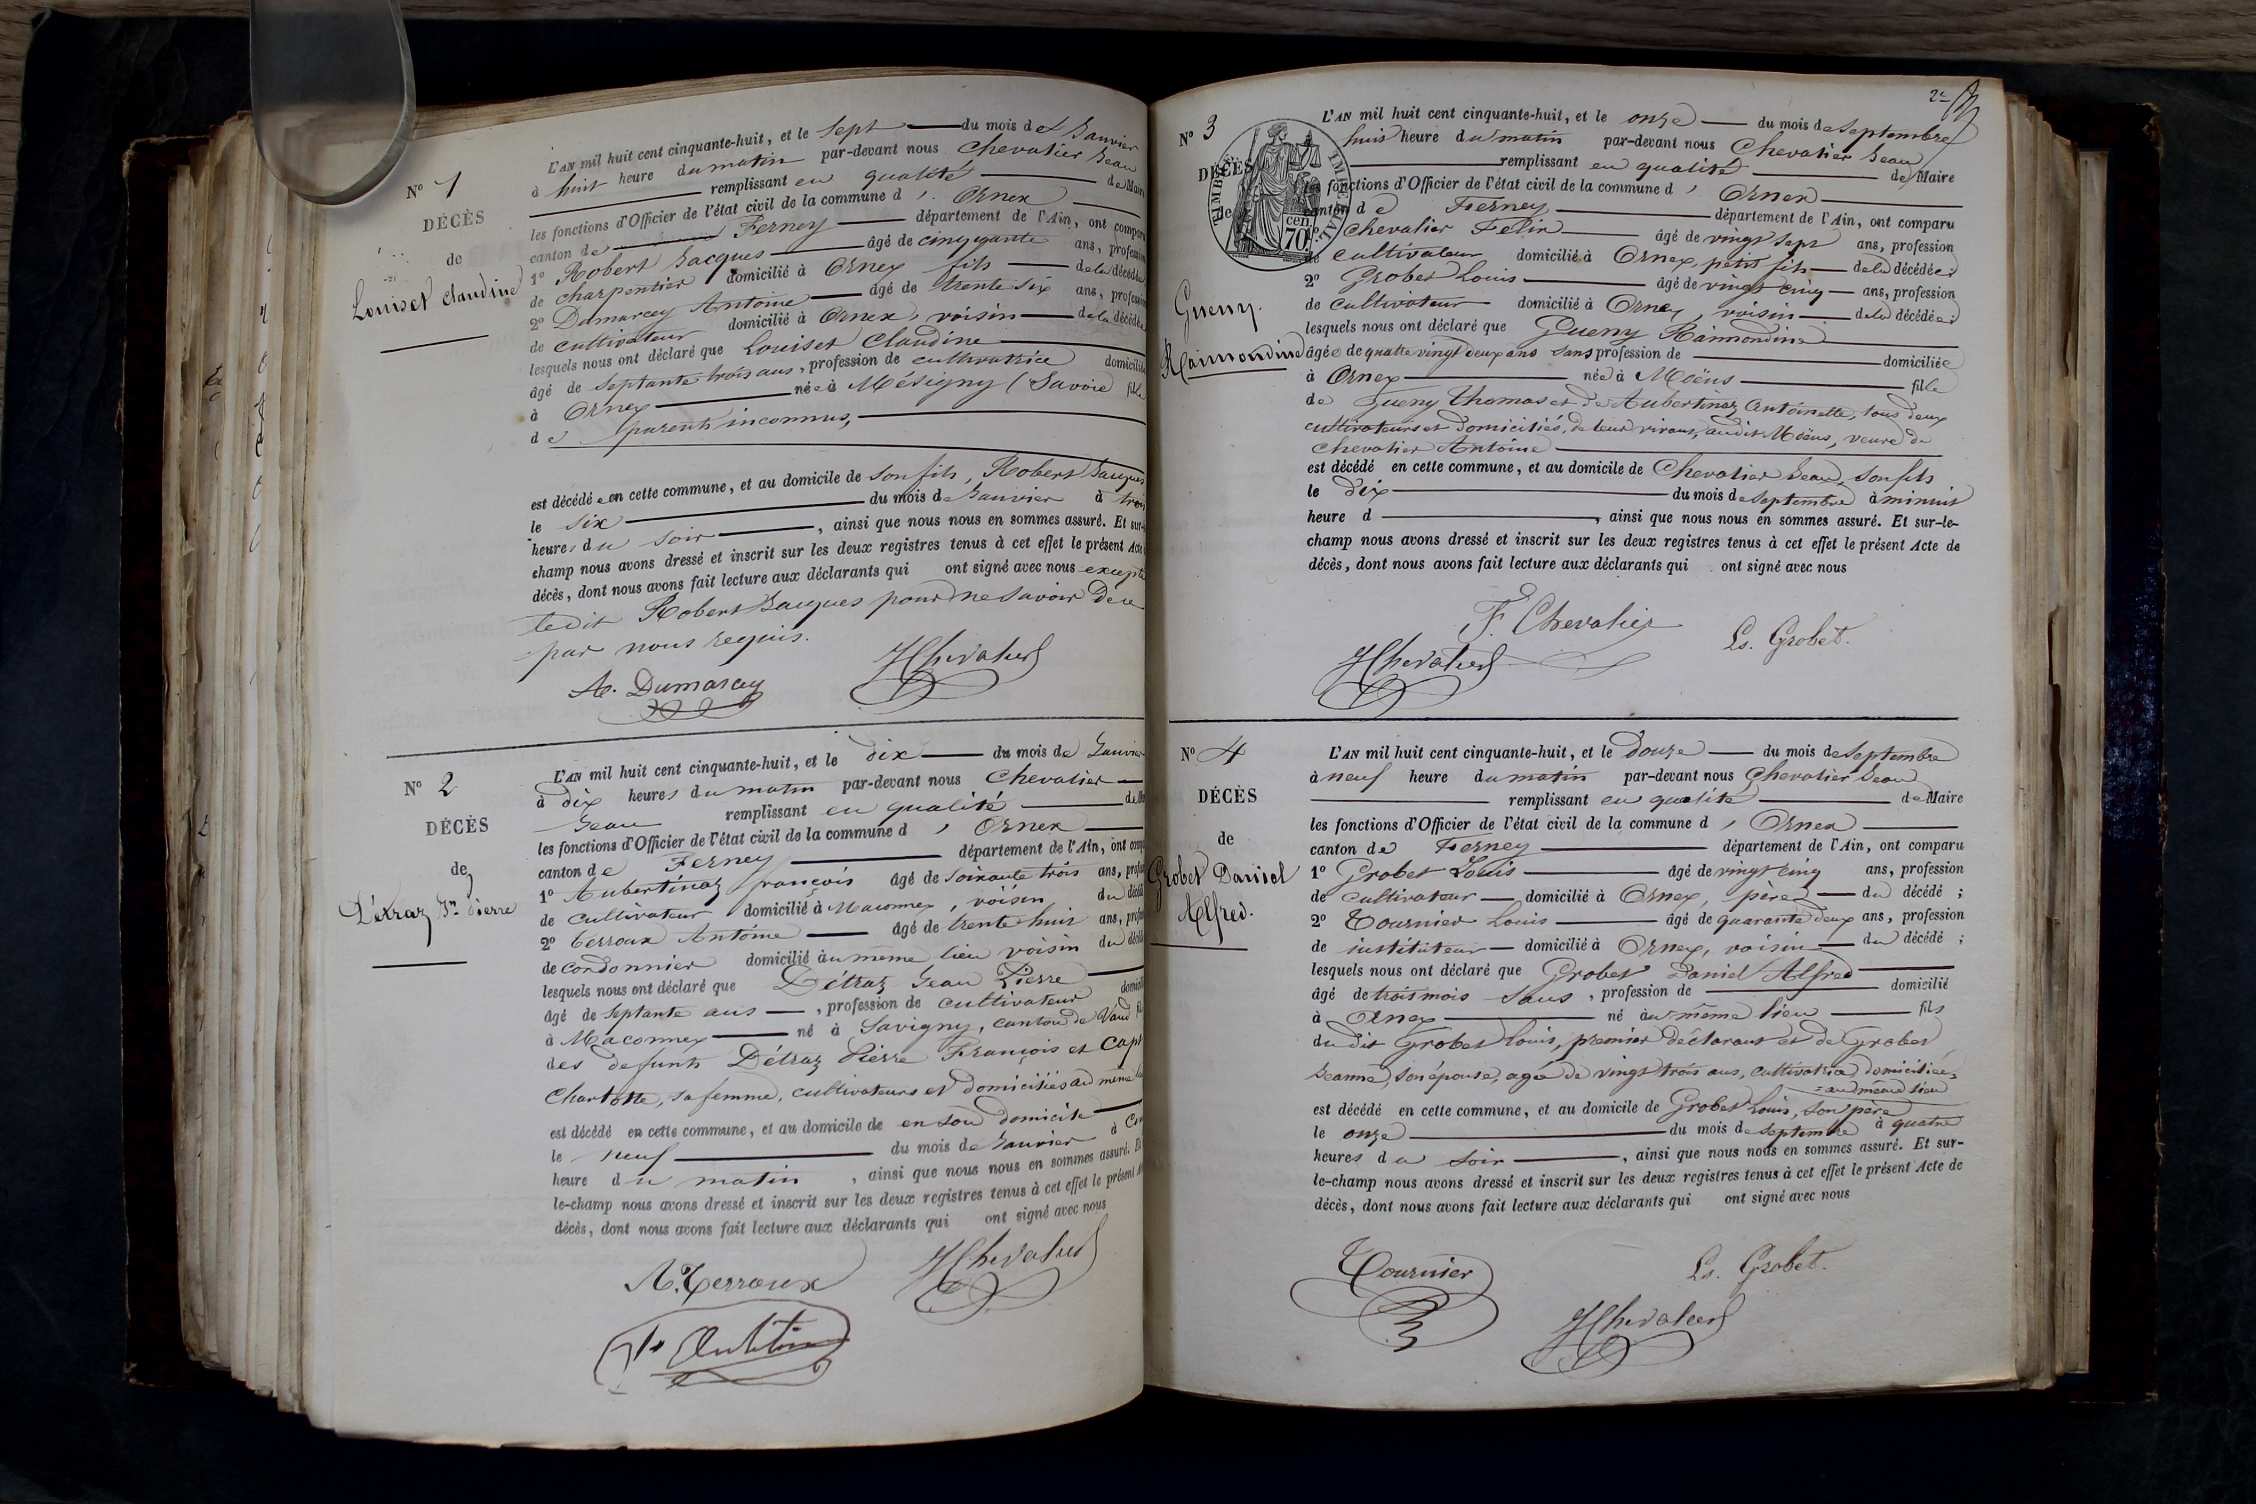 N° 1
DÉCÈS
de
Louiset Claudine
L'AN mil huit cent cinquante-huit, et le sept du mois de Janvier
à huit heure du matin par-devant nous Chevalier Jean
remplissant en qualité de Maire
les fonctions d'Officier de l'état civil de la commune d' Ornex
canton de Ferney département de l'Ain, ont comparu
1° Robert Jacques âgé de cinquante ans, profession
de charpentier domicilié à Ornex fils de la décédée
2° Dumarcey Antoine âgé de trente six ans, profession
de cultivateur domicilié à Ornex, voisin de la décédée
lesquels nous ont déclaré que Louiset Claudine
âgé de septante trois ans, profession de cultivatrice domiciliée
à Ornex née à Mésigny (Savoie fille
de parents inconnus,
est décédée en cette commune, et au domicile de son fils, Robert Jacques
le six du mois de Janvier à trois
heures du soir, ainsi que nous nous en sommes assuré. Et sur-
champ nous avons dressé et inscrit sur les deux registres tenus à cet effet le présent Acte
décès, dont nous avons fait lecture aux déclarants qui ont signé avec nous excepté
ledit Robert Jacques pour ne savoir de ce
par nous requis.
A. Dumarcey JChevalier
N° 2
DÉCÈS
de
Détraz Jn Pierre
L'AN mil huit cent cinquante-huit, et le dix du mois de Janvier
à dix heures du matin par-devant nous Chevalier
Jean remplissant en qualité de
les fonctions d'Officier de l'état civil de la commune d' Ornex
canton de Ferney département de l'Ain, ont comp
1° Aubertinaz françois âgé de soixante trois ans, prof
de cultivateur domicilié à Maconnex, voisin du décédé
2° Terroux Antoine âgé de trente huit ans, prof
de cordonnier domicilié au même lieu voisin du décédé
lesquels nous ont déclaré que Détraz Jean Pierre
âgé de septante ans, profession de cultivateur domicilié
à Maconnex né à Savigny, canton de Vaud fils
des defunts Détraz Pierre François et Capt
Charlotte, sa femme, cultivateurs et domiciliés au même lieu
est décédé en cette commune, et au domicile de en son domicile
le neuf du mois de Janvier à
heure du matin, ainsi que nous nous en sommes assuré. Et
le-champ nous avons dressé et inscrit sur les deux registres tenus à cet effet le présent
décès, dont nous avons fait lecture aux déclarants qui ont signé avec nous
A. Terroux JChevalier
N° 3
DÉCÈS
de
Gueny
Raimondine
TIMBRE IMPÉRIAL
70 cen
L'AN mil huit cent cinquante-huit, et le onze du mois de Septembre
huit heure du matin par-devant nous Chevalier Jean
remplissant en qualité de Maire
fonctions d'Officier de l'état civil de la commune d' Ornex
canton de Ferney département de l'Ain, ont comparu
Chevalier Felix âgé de vingt sept ans, profession
de cultivateur domicilié à Ornex, petit fils de la décédée;
2° Grobet Louis âgé de vingt cinq ans, profession
de cultivateur domicilié à Ornex, voisin de la décédée;
lesquels nous ont déclaré que Gueny Raimondine
âgée de quatre vingt deux ans sans profession de domiciliée
à Ornex née à Moëns fille
de Gueny Thomas et de Aubertinaz Antoinette, tous deux
cultivateurs et domiciliés, de leur vivant, audit Moëns, veuve de
Chevalier Antoine
est décédé en cette commune, et au domicile de Chevalier Jean, son fils
le dix du mois de Septembre à minuit
heure d, ainsi que nous nous en sommes assuré. Et sur-le-
champ nous avons dressé et inscrit sur les deux registres tenus à cet effet le présent Acte de
décès, dont nous avons fait lecture aux déclarants qui ont signé avec nous
F. Chevalier
JChevalier Ls. Grobet.
N° 4
DÉCÈS
de
Grobet Daniel
Alfred.
L'AN mil huit cent cinquante-huit, et le douze du mois de Septembre
à neuf heure du matin par-devant nous Chevalier Jean
remplissant en qualité de Maire
les fonctions d'Officier de l'état civil de la commune d' Ornex
canton de Ferney département de l'Ain, ont comparu
1° Grobet Louis âgé de vingt cinq ans, profession
de cultivateur domicilié à Ornex, père du décédé;
2° Tournier Louis âgé de quarante deux ans, profession
de instituteur domicilié à Ornex, voisin du décédé;
lesquels nous ont déclaré que Grobet Daniel Alfred
âgé de trois mois sans, profession de domicilié
à Ornex né au même lieu fils
du dit Grobet Louis, premier déclarant et de Grobet
Jeanne, son épouse, agée de vingt trois ans, cultivatrice, domiciliée
au même lieu
est décédé en cette commune, et au domicile de Grobet Louis, son père
le onze du mois de Septembre à quatre
heures du soir, ainsi que nous nous en sommes assuré. Et sur-
le-champ nous avons dressé et inscrit sur les deux registres tenus à cet effet le présent Acte de
décès, dont nous avons fait lecture aux déclarants qui ont signé avec nous
Tournier Ls. Grobet.
JChevalier